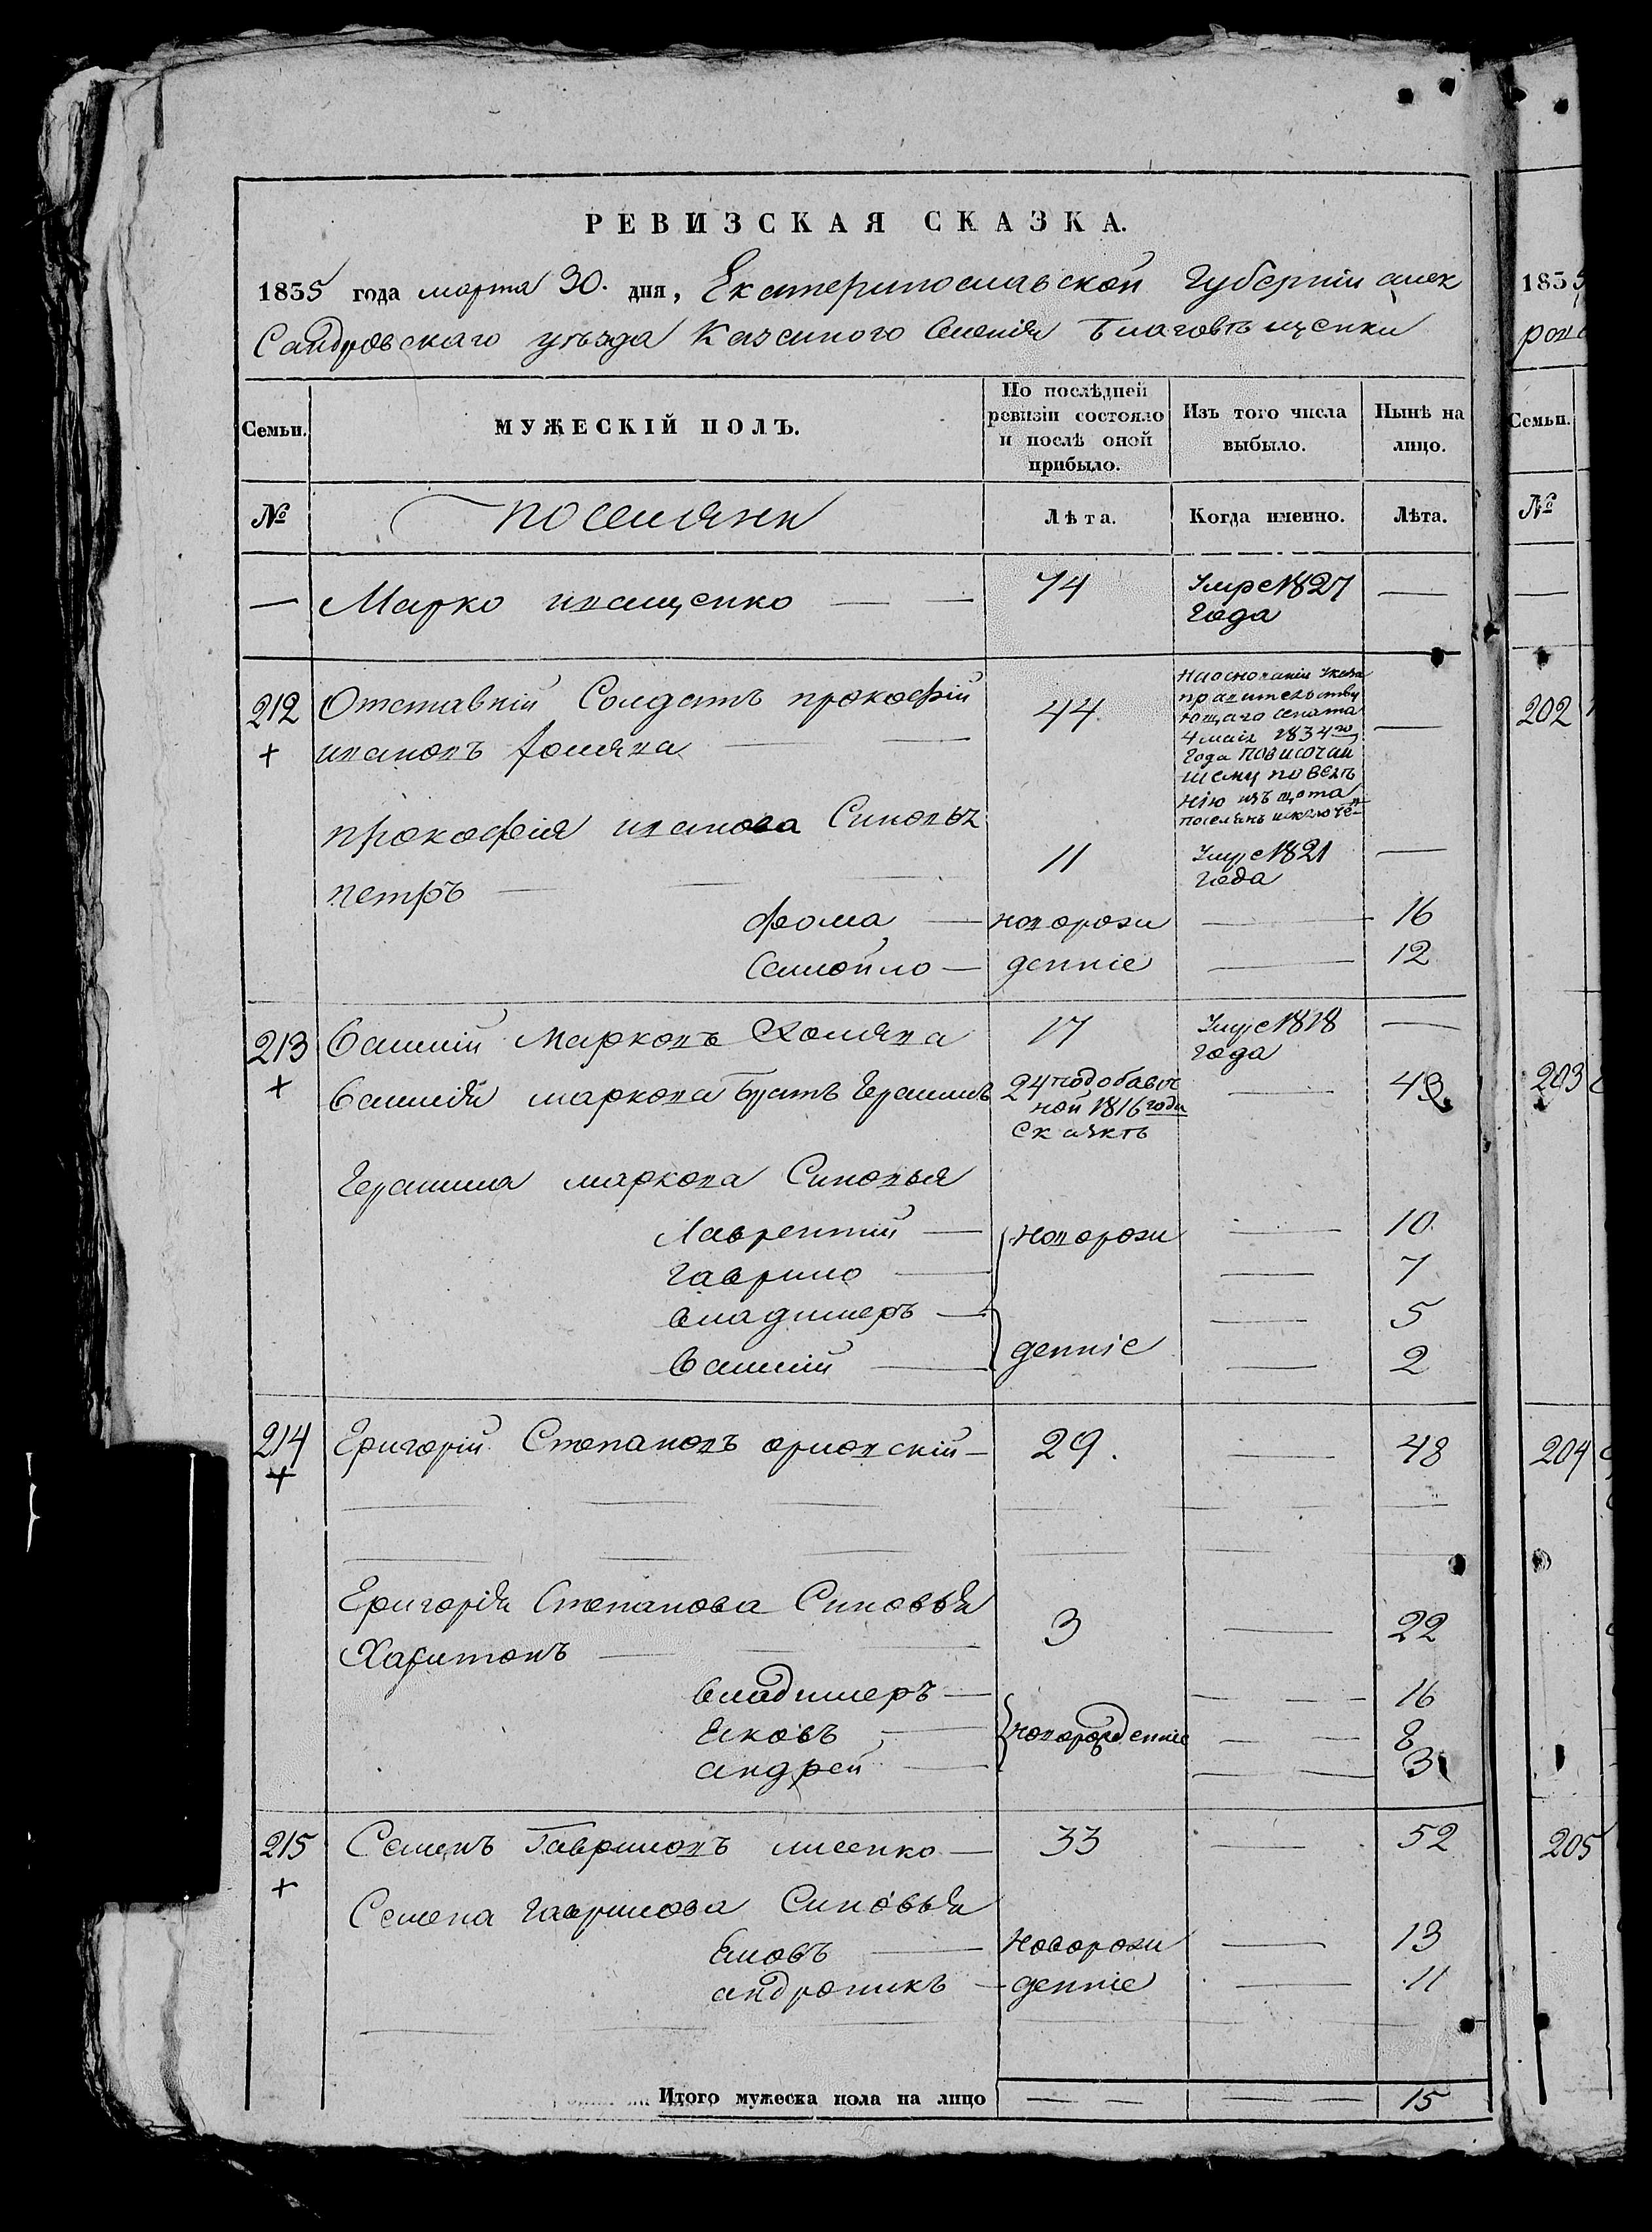 РЕВИЗСКАЯ СКАЗКА.
1835 года марта 30. дня, Екатеринославской Губерніи алек
Сандровскаго уѣзда Казенного Селенія Благовѣщенки
Семьи. МУЖЕСКІЙ ПОЛЪ. По послѣдней ревизіи состояло и послѣ оной прибыло. Изъ того числа выбыло. Нынѣ на лицо.
№ поселяни Лѣта. Когда именно. Лѣта.
— Марко иващенко — — 74 Умре 1827 —
года
212 Отставній Солдатъ прокофій 44 На основаніи Указа
+ ивановъ Холява — — правительству
ющаго Сената —
4 маія 1834го
года По височай
шему повелѣ
нію изъ щота
поселянъ исключен
прокофія иванова Синовья
петръ — — — 11 Умре 1821 —
года
фома — новорож — 16
Самойло — денніе — 12
213 Василій Марковъ Холява 17 Умре 1818 —
года
+ Василія маркова братъ Герасимъ 24 подобавоч — 43
ной 1816 года
Сказкѣ
Герасима маркова Синовья
Лаврентій — новорож — 10
Гаврило — — 7
Владимеръ — — 5
Василій — денніе — 2
214 Григорій Степановъ орловскій — 29. — 48
+
Григорія Степанова Синовья
Харитонъ — — 3 — 22
Владимеръ — — — — 16
Яковъ — новорожденніе — — 8
андрей — — 3
215 Семенъ Гавриловъ лисенко — 33 — 52
+ Семена Гаврилова Синовья
Яковъ — Новорож — 13
андроникъ — денніе — 11
Итого мужеска пола на лицо — — — — 15
1835
Семьи.
№
—
202
203
204
205